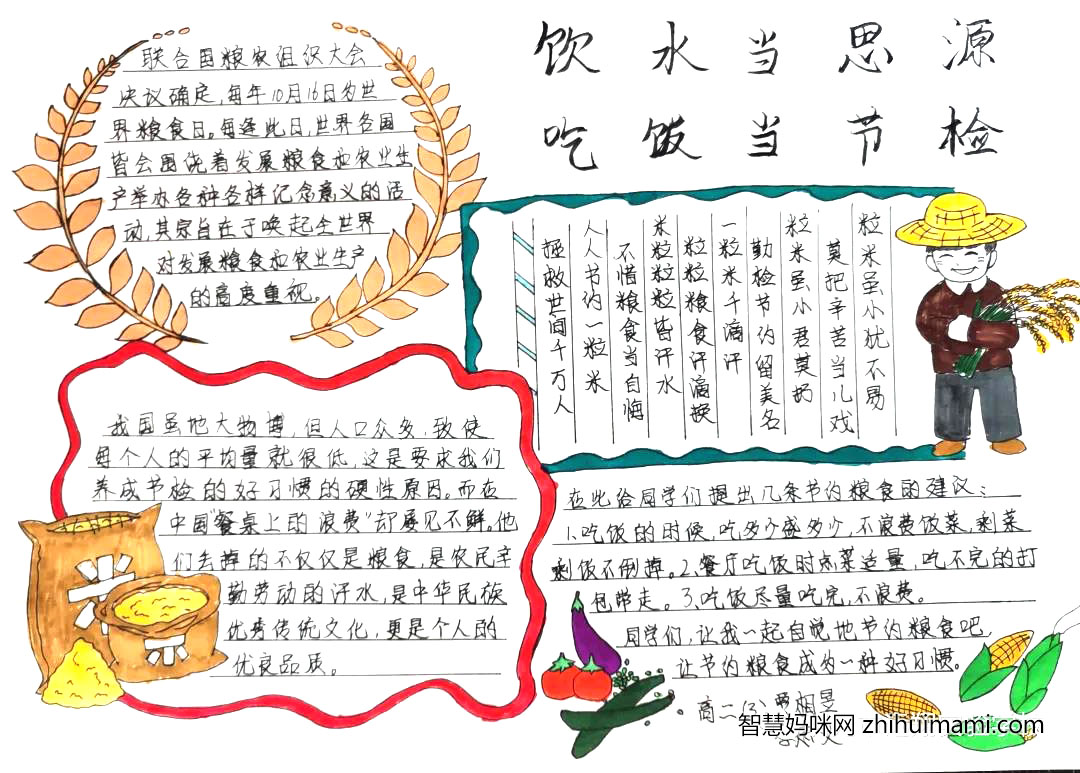 饮水当思源
吃饭当节检
联合国粮农组织大会
决议确定,每年10月16日为世
界粮食日。每逢此日,世界各国
皆会围绕着发展粮食和农业生
产举办各种各样记念意义的活
动,其宗旨在于唤起全世界
对发展粮食和农业生产
的高度重视。
粒米虽小犹不易
莫把辛苦当儿戏
粒米虽小君莫扔
勤检节约留美名
一粒米千滴汗
粒粒粮食汗滴换
米粒粒粒皆汗水
不惜粮食当自悔
人人节约一粒米
拯救世间千万人
我国虽地大物博,但人口众多,致使
每个人的平均量就很低,这是要求我们
养成节检的好习惯的硬性原因。而在
中国“餐桌上的浪费”却屡见不鲜。他
们去掉的不仅仅是粮食,是农民辛
勤劳动的汗水,是中华民族
优秀传统文化,更是个人的
优良品质。
米
米
在此给同学们提出几条节约粮食的建议:
1.吃饭的时候,吃多少盛多少,不浪费饭菜,剩菜
剩饭不倒掉。2.餐厅吃饭时点菜适量,吃不完的打
包带走。3.吃饭尽量吃完,不浪费。
同学们,让我一起自觉地节约粮食吧,
让节约粮食成为一种好习惯。
高二
智慧妈咪网 zhihuimami.com